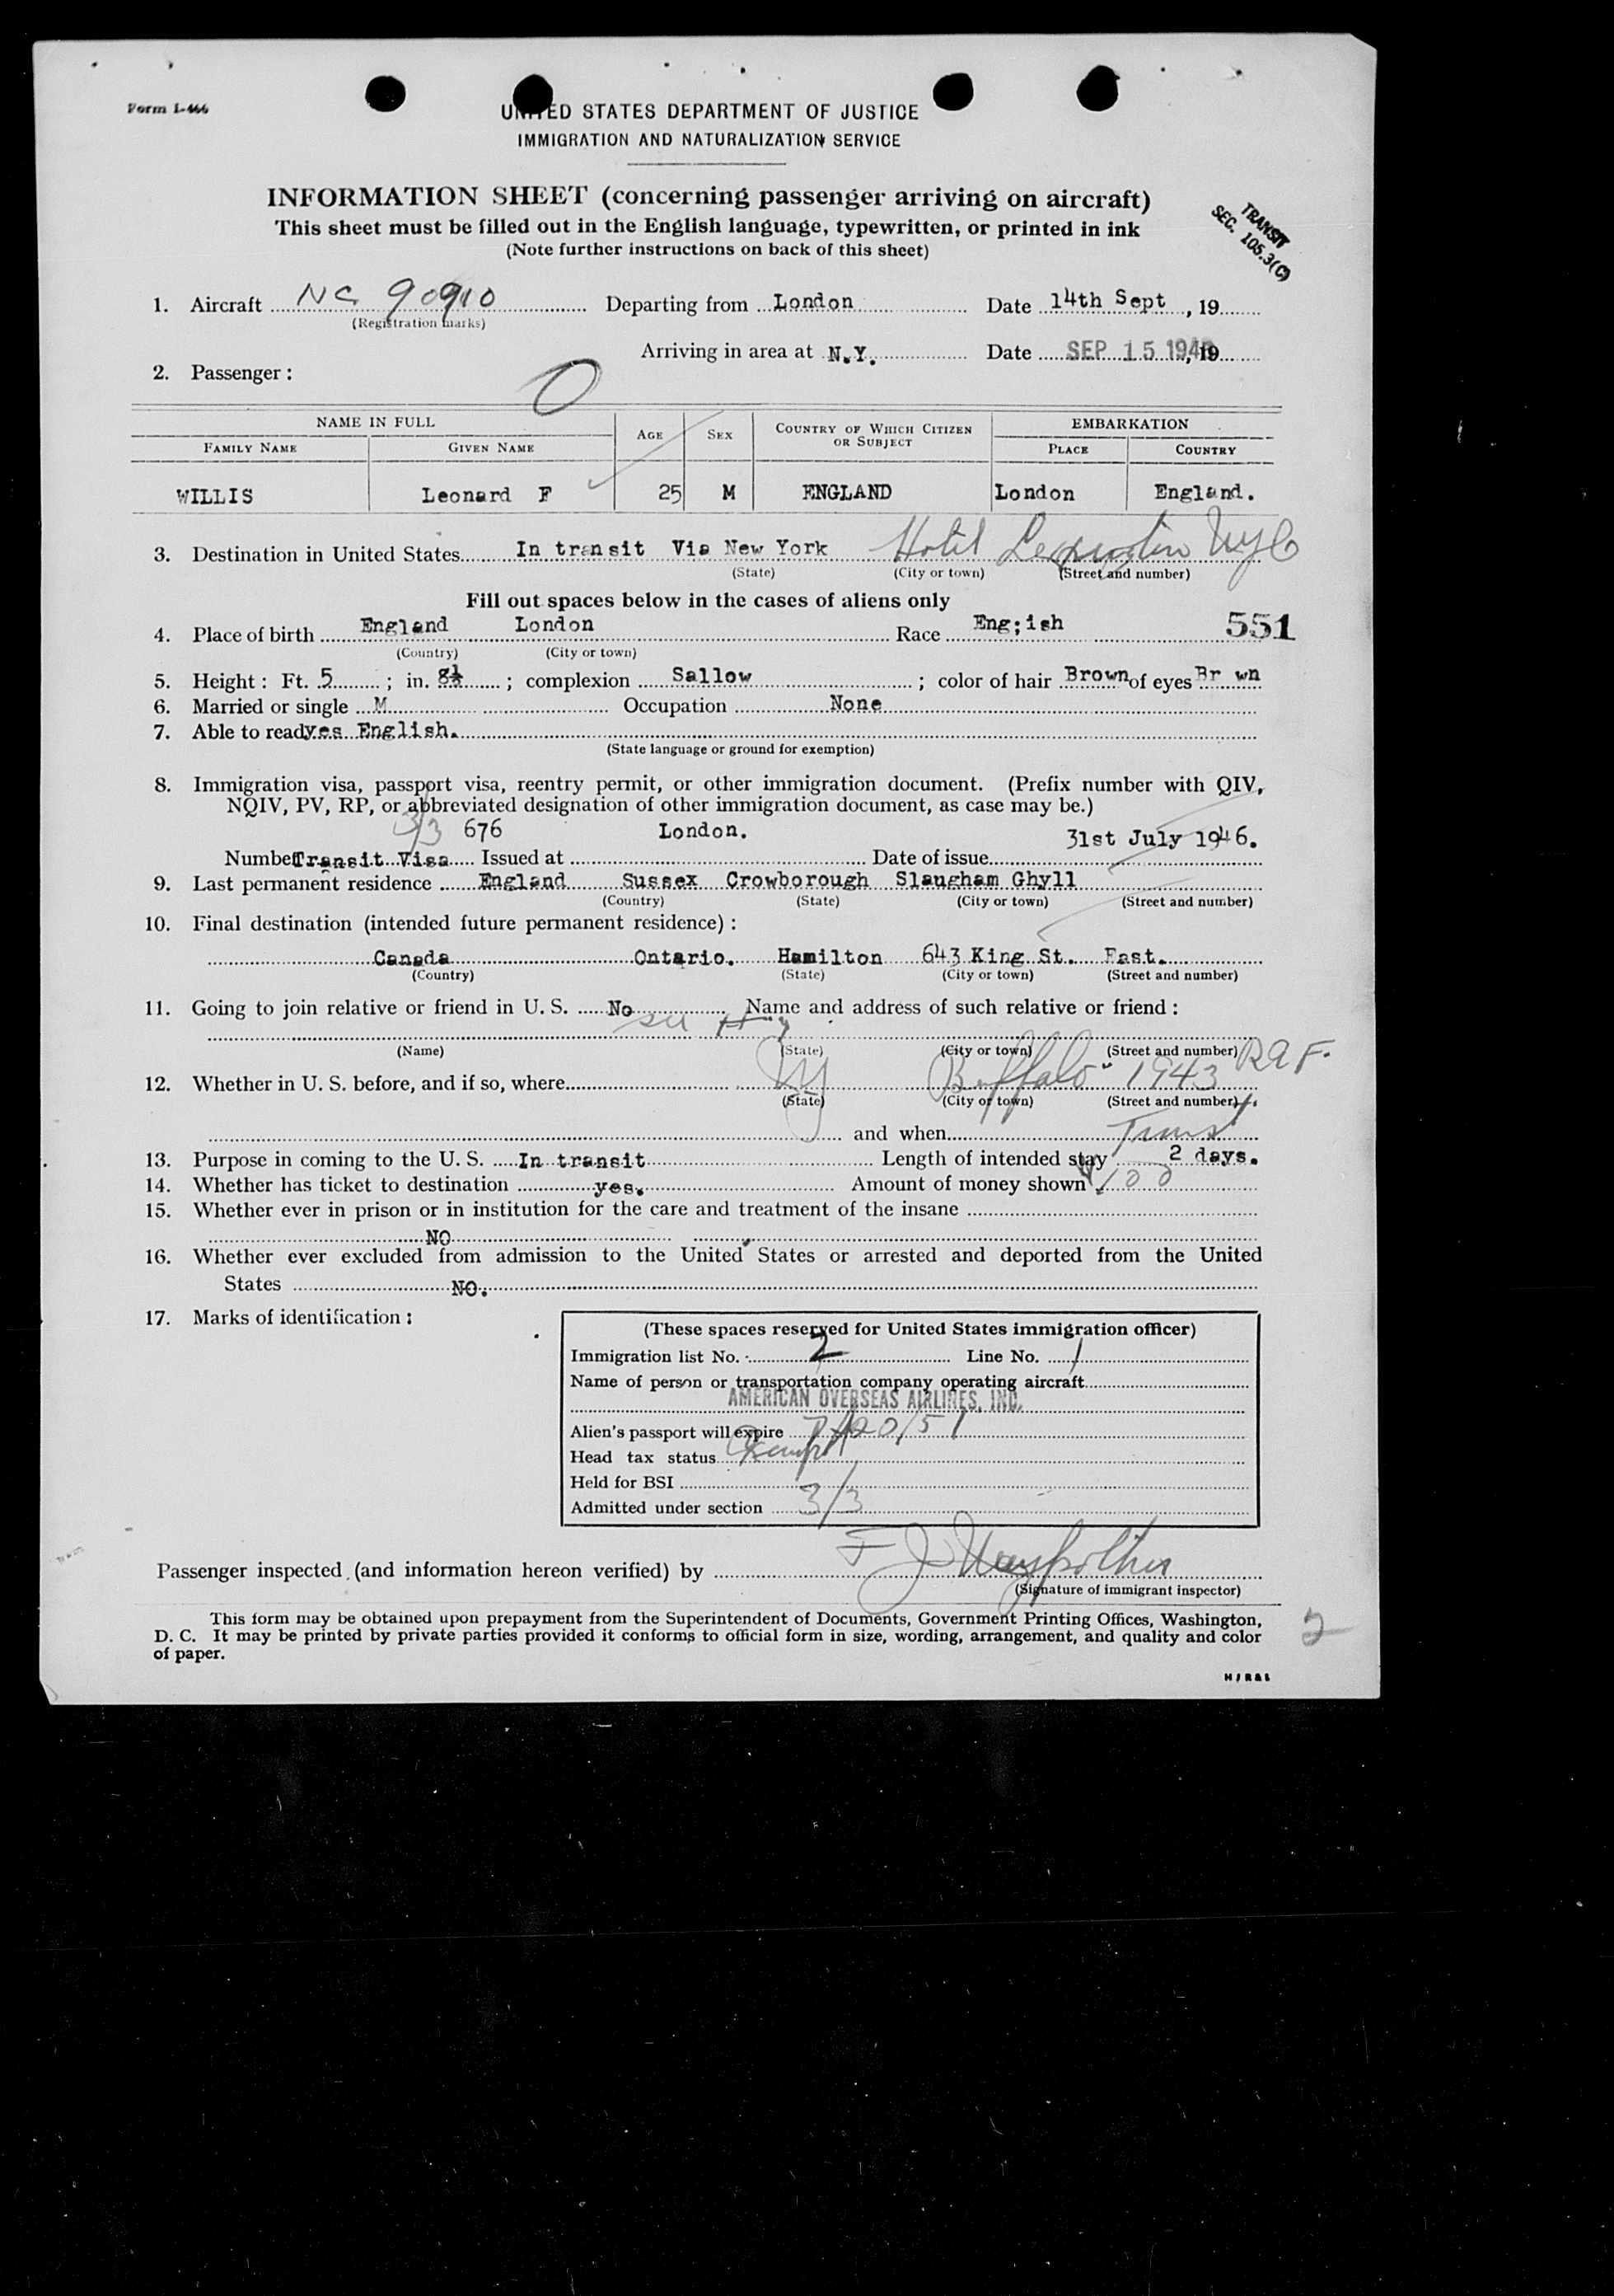 Form I-466
UNITED STATES DEPARTMENT OF JUSTICE
IMMIGRATION AND NATURALIZATION SERVICE
INFORMATION SHEET (concerning passenger arriving on aircraft)
This sheet must be filled out in the English language, typewritten, or printed in ink
(Note further instructions on back of this sheet)
TRANSIT
SEC. 105.3(C)
1. Aircraft NC 90910 Departing from London Date 14th Sept, 19
(Registration marks)
Arriving in area at N.Y. Date SEP 15 1946, 19
2. Passenger:
NAME IN FULL AGE SEX COUNTRY OF WHICH CITIZEN OR SUBJECT EMBARKATION
FAMILY NAME GIVEN NAME PLACE COUNTRY
WILLIS Leonard F 25 M ENGLAND London England.
3. Destination in United States In transit Via New York Hotel Lexington NYC
(State) (City or town) (Street and number)
Fill out spaces below in the cases of aliens only
4. Place of birth England London Race Eng;ish 551
(Country) (City or town)
5. Height: Ft. 5; in. 8½; complexion Sallow; color of hair Brown of eyes Br wn
6. Married or single M Occupation None
7. Able to read yes English.
(State language or ground for exemption)
8. Immigration visa, passport visa, reentry permit, or other immigration document. (Prefix number with QIV,
NQIV, PV, RP, or abbreviated designation of other immigration document, as case may be.)
3/3 676 London. 31st July 1946.
Number Transit Visa Issued at Date of issue
9. Last permanent residence England Sussex Crowborough Slaugham Ghyll
(Country) (State) (City or town) (Street and number)
10. Final destination (intended future permanent residence):
Canada Ontario. Hamilton 643 King St. East.
(Country) (State) (City or town) (Street and number)
11. Going to join relative or friend in U. S. No Name and address of such relative or friend:
(Name) (State) (City or town) (Street and number) RAF.
12. Whether in U. S. before, and if so, where NY Buffalo 1943
(State) (City or town) (Street and number)
and when
13. Purpose in coming to the U. S. In transit Length of intended stay 2 days.
14. Whether has ticket to destination yes. Amount of money shown 100
15. Whether ever in prison or in institution for the care and treatment of the insane
NO
16. Whether ever excluded from admission to the United States or arrested and deported from the United
States NO.
17. Marks of identification:
(These spaces reserved for United States immigration officer)
Immigration list No. 2 Line No. 1
Name of person or transportation company operating aircraft
AMERICAN OVERSEAS AIRLINES, INC.
Alien's passport will expire 7/20/51
Head tax status Exempt
Held for BSI
Admitted under section 3/3
Passenger inspected (and information hereon verified) by
(Signature of immigrant inspector)
This form may be obtained upon prepayment from the Superintendent of Documents, Government Printing Offices, Washington,
D. C. It may be printed by private parties provided it conforms to official form in size, wording, arrangement, and quality and color
of paper.
2